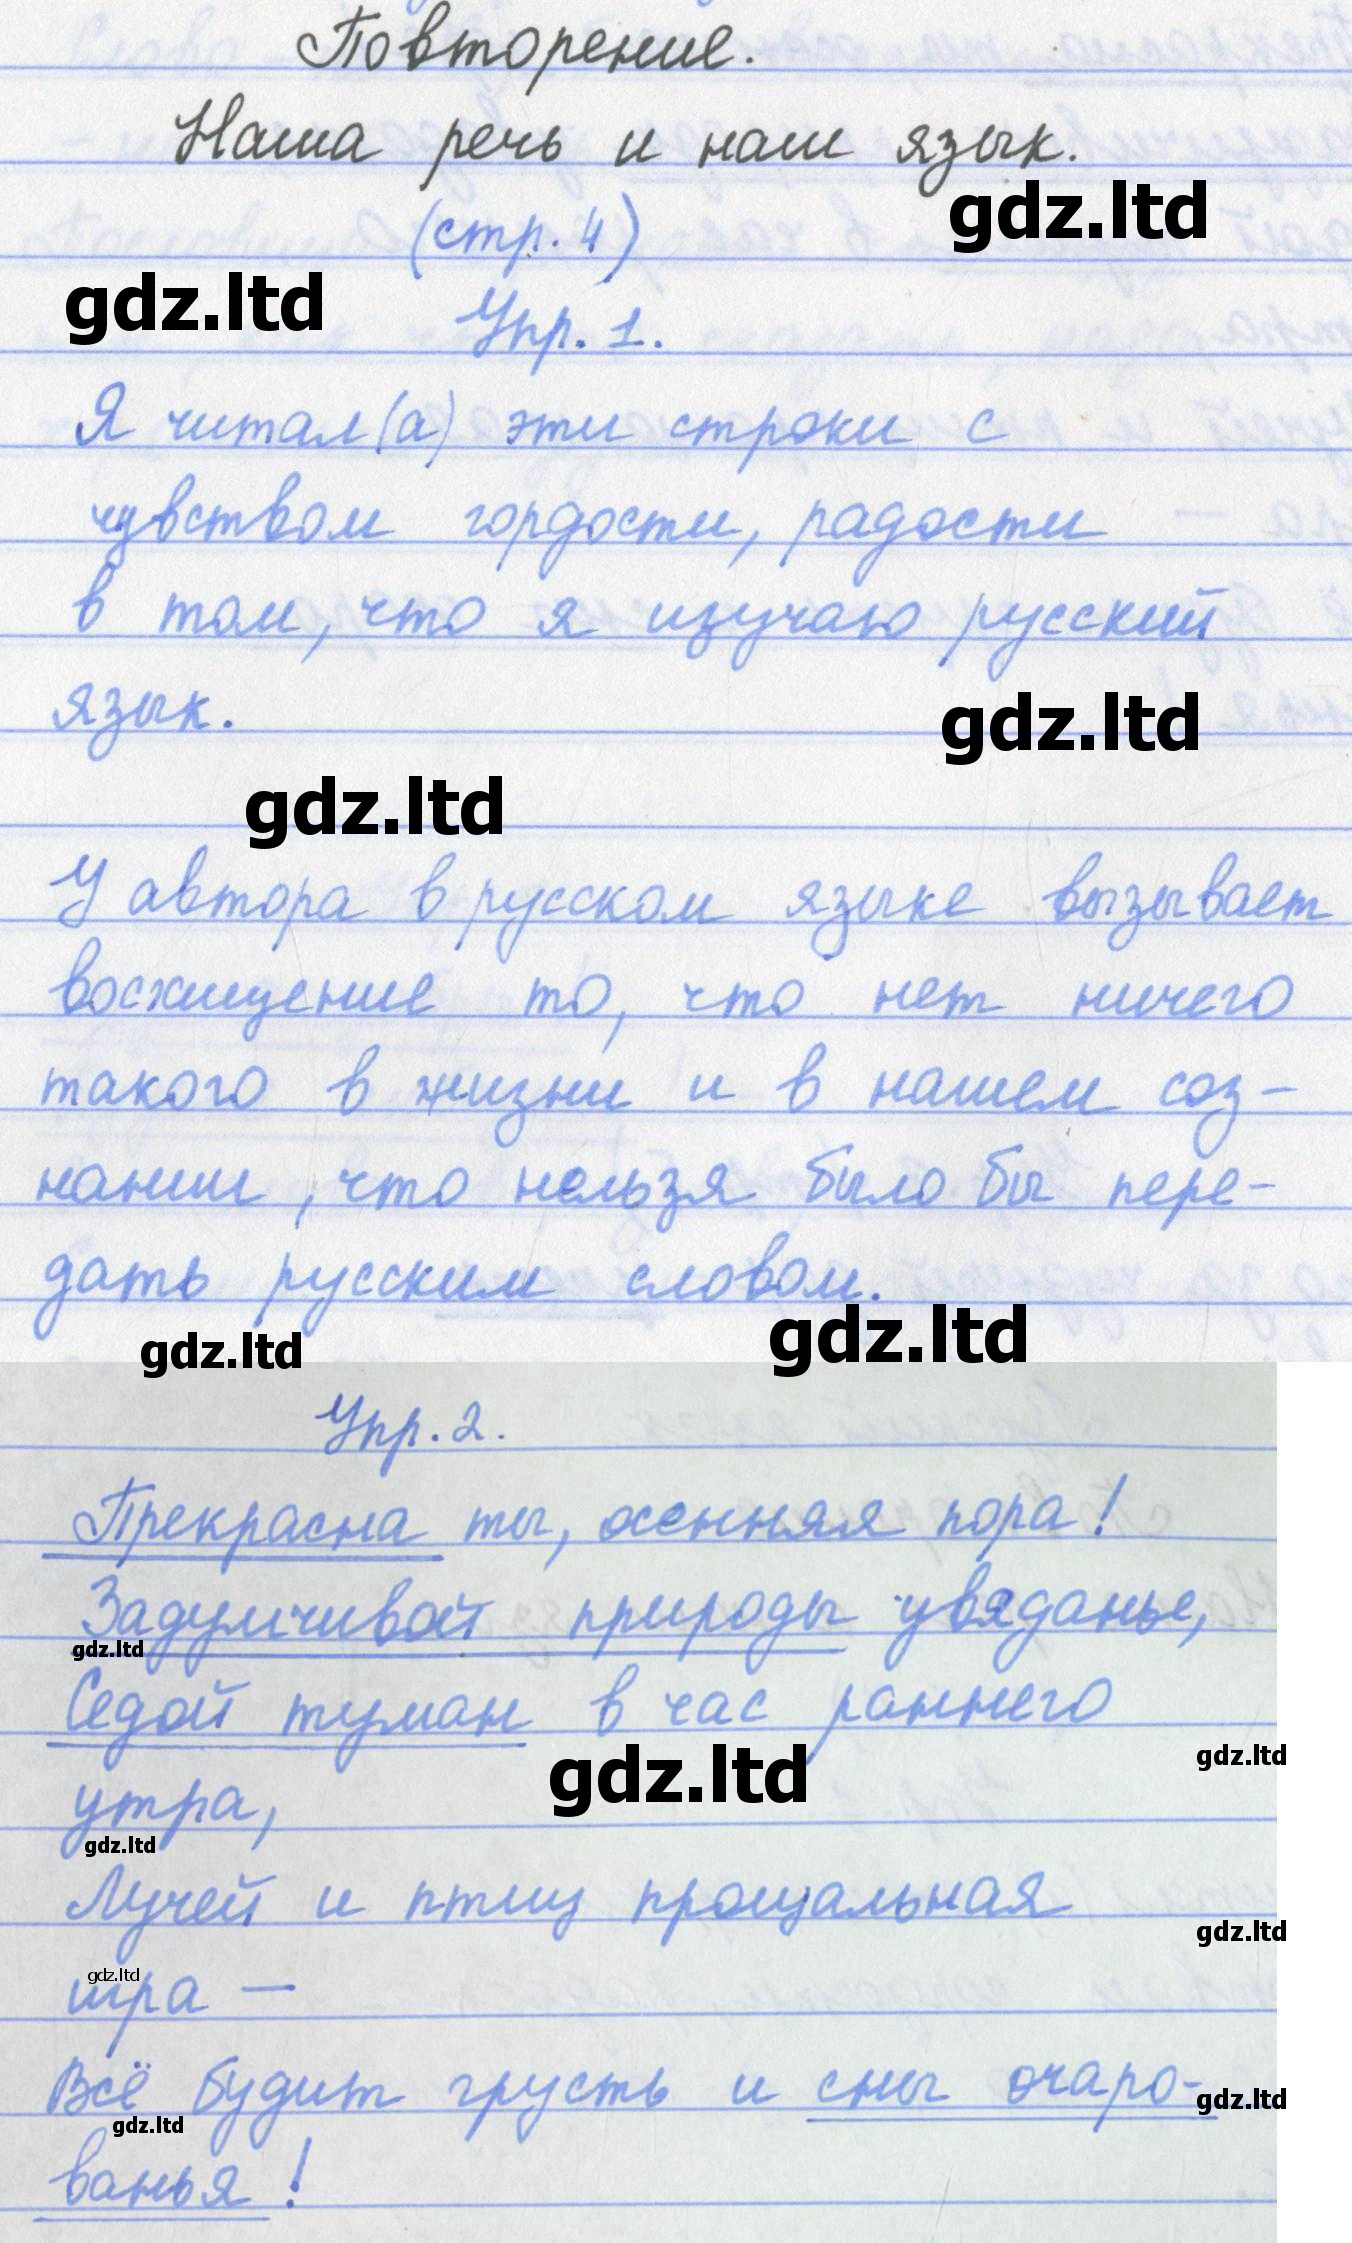 Повторение.
Наша речь и наш язык.
gdz.ltd
(стр. 4)
gdz.ltd
Упр. 1.
Я читал(а) эти строки с
чувством гордости, радости
в том, что я изучаю русский
язык.
gdz.ltd
gdz.ltd
У автора в русском языке вызывает
восхищение то, что нет ничего
такого в жизни и в нашем соз-
нании, что нельзя было бы пере-
дать русским словом.
gdz.ltd
gdz.ltd
Упр. 2.
Прекрасна ты, осенняя пора!
Задумчивой природы увяданье,
gdz.ltd
Седой туман в час раннего
gdz.ltd
gdz.ltd
утра,
gdz.ltd
Лучей и птиц прощальная
gdz.ltd
gdz.ltd
игра —
Всё будит грусть и сны очаро-
gdz.ltd
gdz.ltd
ванья!